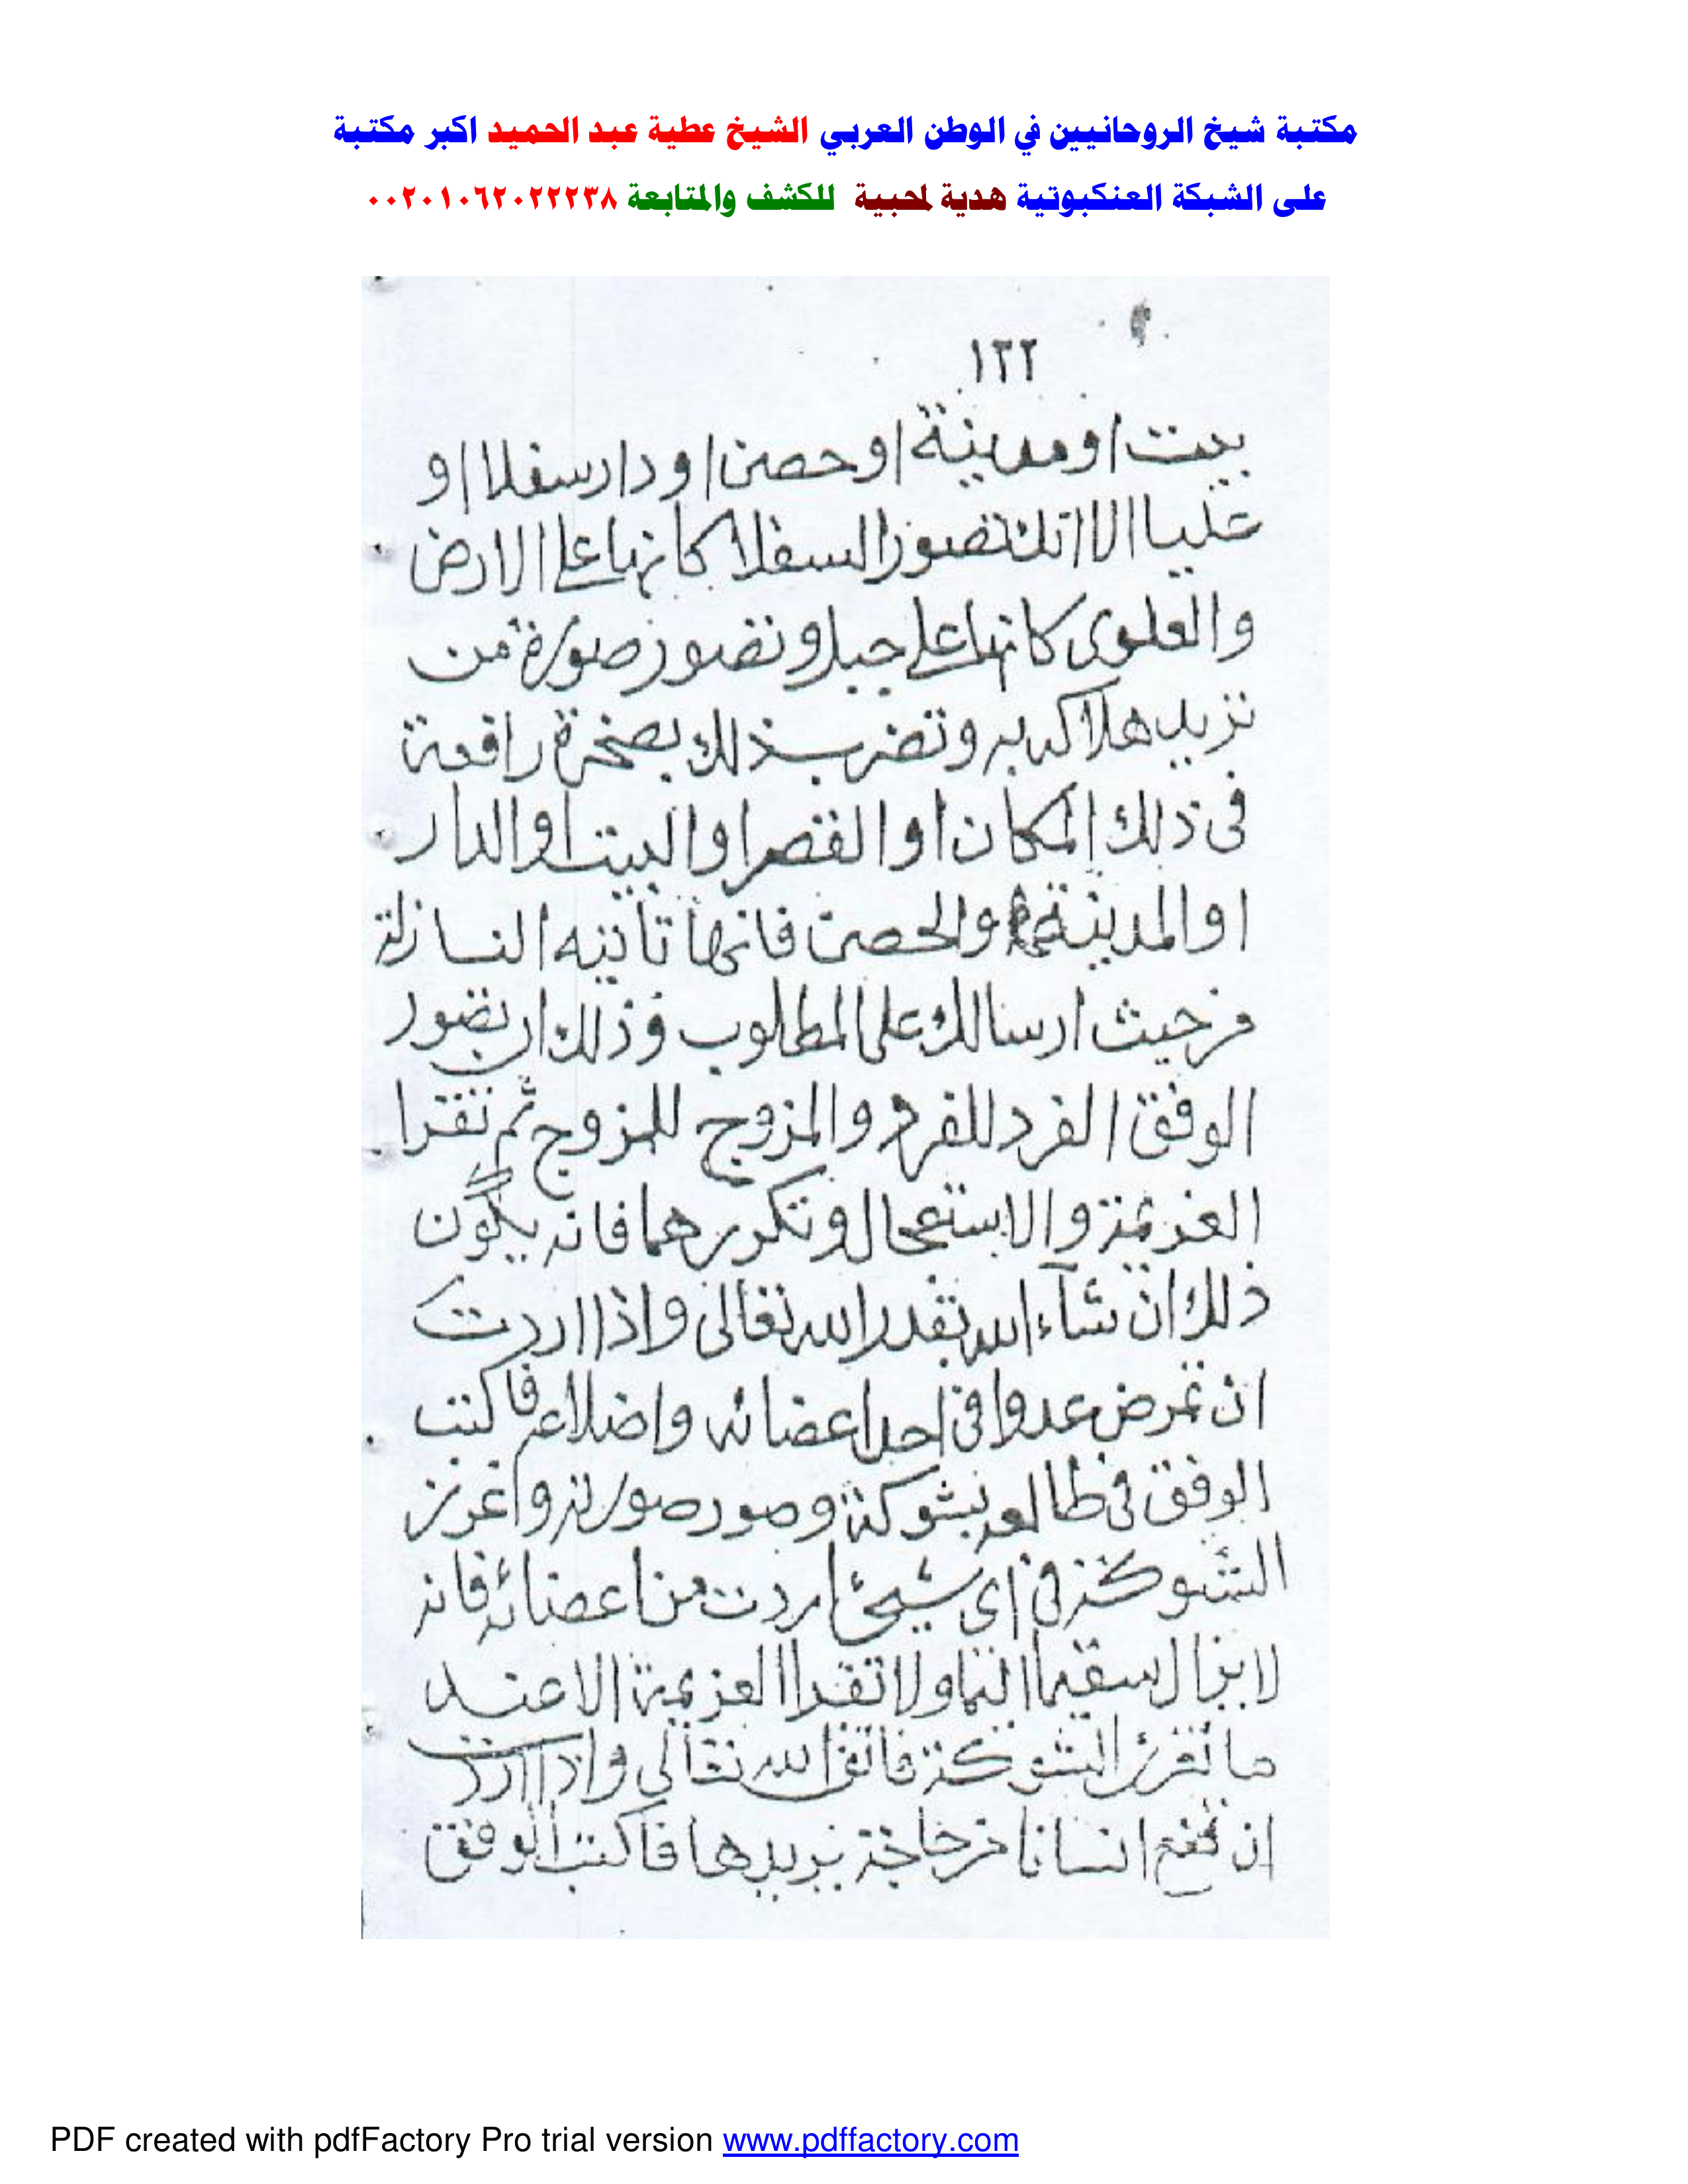 مكتبة شيخ الروحانيين في الوطن العربي الشيخ عطية عبد الحميد اكبر مكتبة
على الشبكة العنكبوتية هدية لمحبية للكشف والمتابعة ٠٠٢٠١٠٦٢٠٢٢٢٣٨
١٢٢
بيت او مدينة او حصن او دار سفلا او
عليا الا انك تصور السفلا كانها على الارض
والعلوى كانها على جبل وتصور صورة من
تريد هلاكه به وتضرب ذلك بصخرة راقعة
فى ذلك المكان او القصر او البيت او الدار
او المدينة والحصن فانها تاتيه النازلة
من حيث ارسالك على المطلوب وذلك ان تصور
الوفق الفرد للفرد والمزوج للمزوج ثم تقرا
العزيمة والاستعجال وتكررهما فانه يكون
ذلك ان شآء الله بقدر الله تعالى واذا اردت
ان تمرض عدوا فى احد اعضائه واضلاعه فاكتب
الوفق فى طالعه بشوكة وصور صورته واغرز
الشوكة فى اى شيئ اردت من اعضائه فانه
لا يزال سقيما الما ولا تقرا العزيمة الا عند
ما تغرز الشوكة فاتق الله تعالى واذا اردت
ان تمنع انسانا من حاجة يريدها فاكتب الوفق
PDF created with pdfFactory Pro trial version www.pdffactory.com